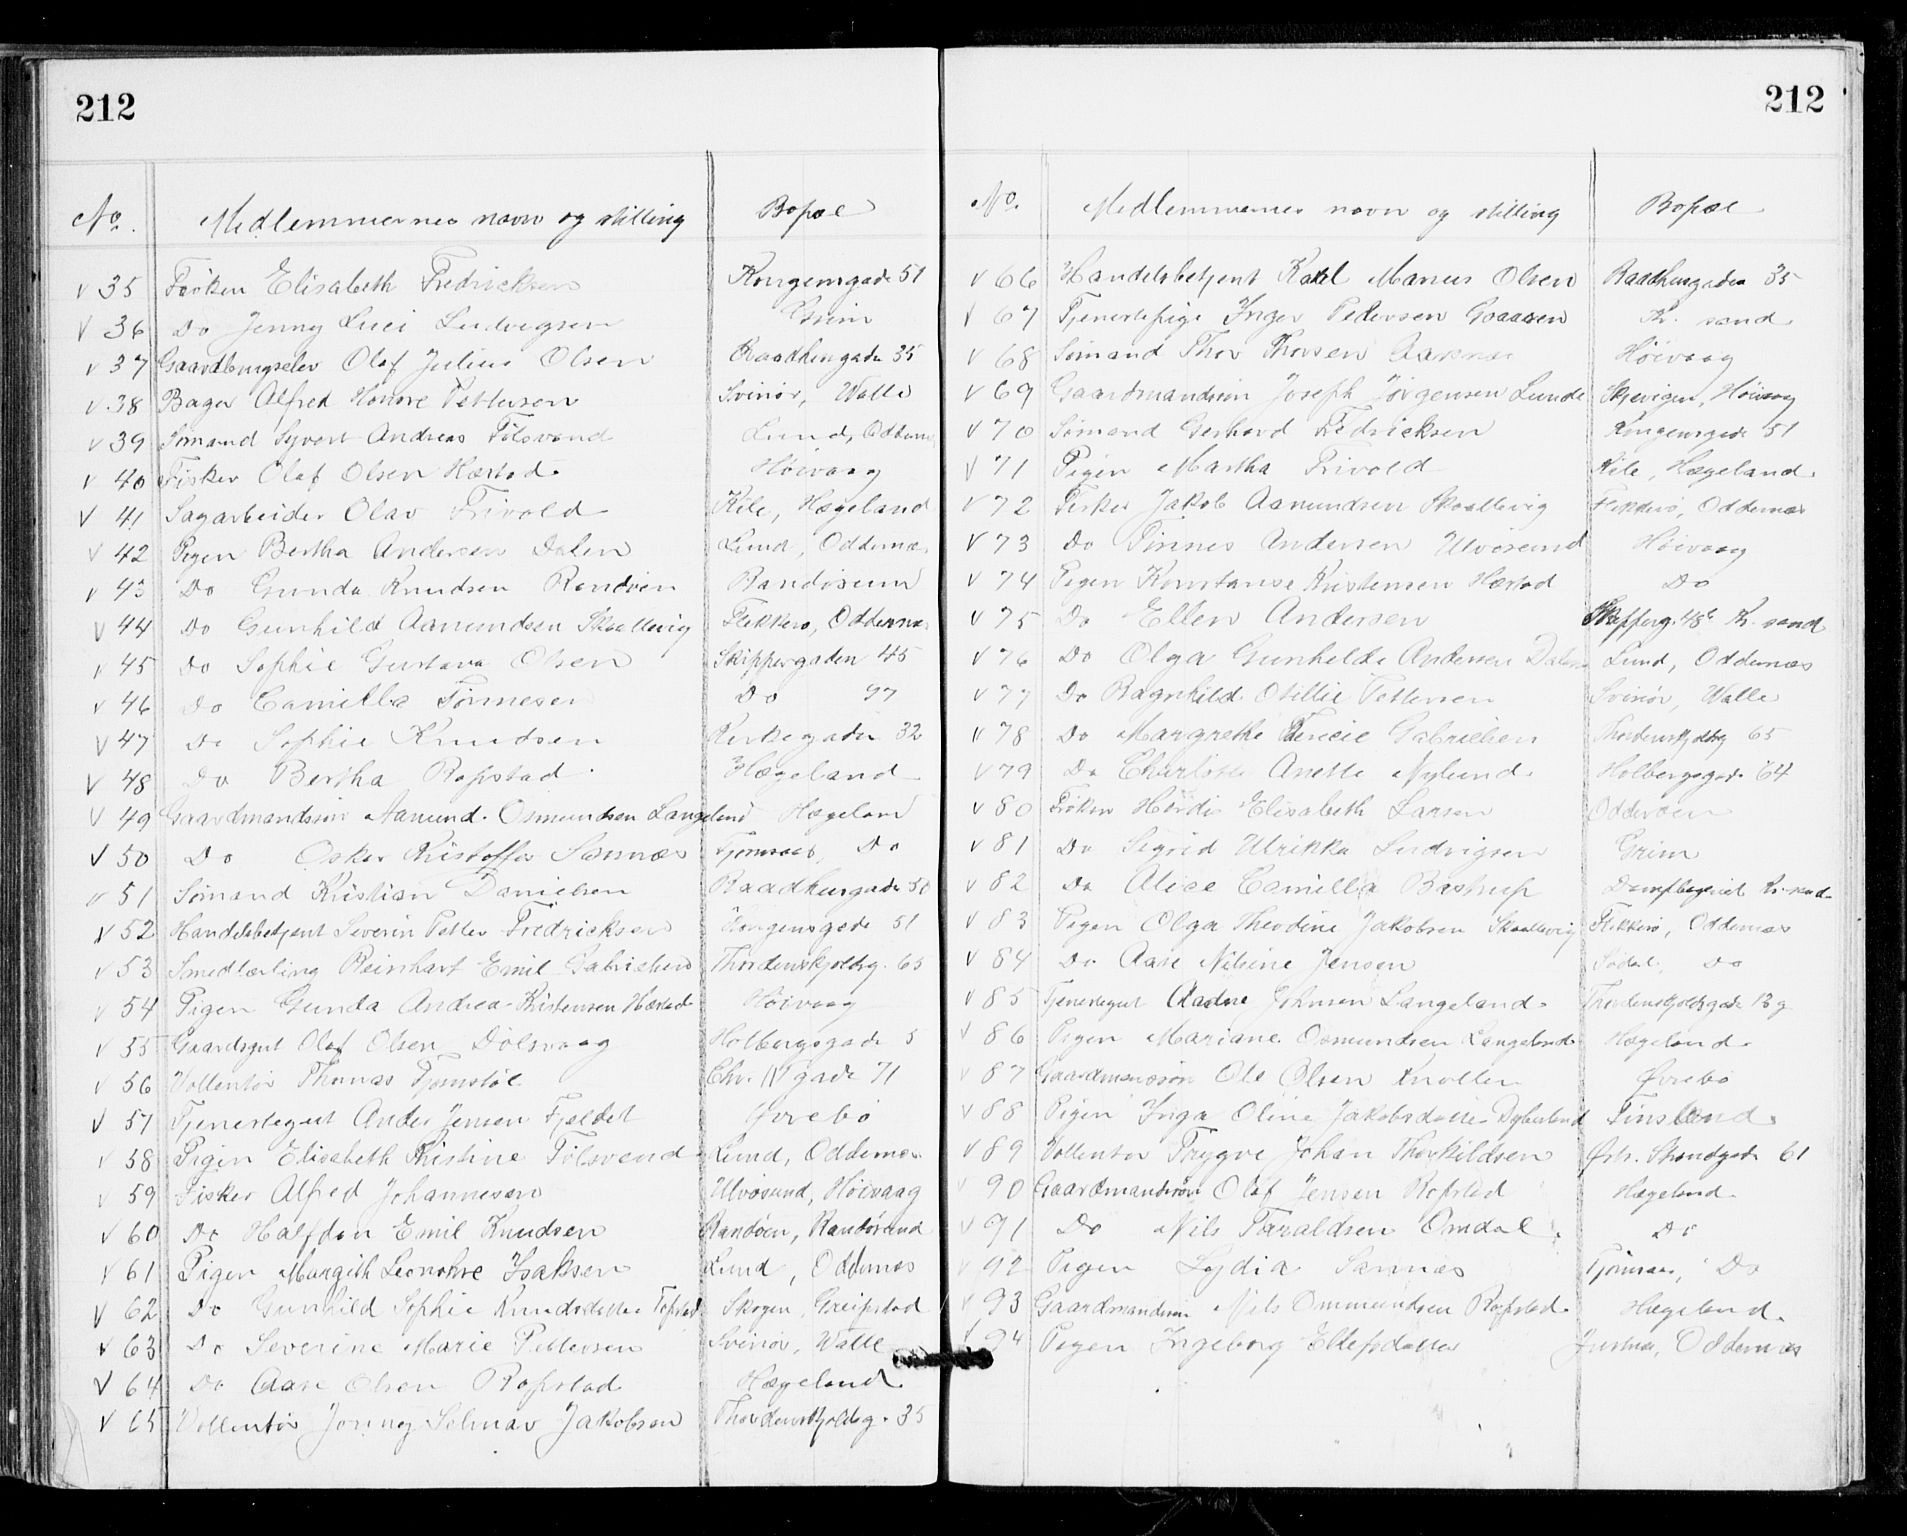 212
No. Medlemmernes navn og stilling Bopæl
v 35 Frøken Elisabeth Fredricksen Kongensgade 51
v 36 Do Jenny Luci Ludvigsen Grim
v 37 Olaf Julius Olsen Raadhusgade 35
v 38 Bager Alfred Honore Pettersen Svinør, Walle
v 39 Sømand Syvert Andreas Følsvand Lund, Oddernæs
v 40 Fisker Olaf Olsen Hæstad Høivaag
v 41 Sagarbeider Olav Frivold Kile, Hægeland
v 42 Pigen Bertha Andersen Dalen Lund, Oddernæs
v 43 Do Gunda Knudsen Randøen Randøsund
v 44 Do Gunhild Aamundsen Skaallevig Flekkerø, Oddernæs
v 45 Do Sophie Gustava Olsen Skippergaden 45
v 46 Do Camilla Tønnesen Do 97
v 47 Do Sophie Knudsen Kirkegaden 32
v 48 Do Bertha Røpstad Hægeland
v 49 Gaardmandssøn Aanund Osmundsen Langeland Hægeland
v 50 Do Oskar Kristoffer Sannæs Tjomsaas, Do
v 51 Sømand Kristian Danielsen Raadhusgade 50
v 52 Handelsbetjent Severin Petter Fredricksen Kongensgade 51
v 53 Smedlærling Reinhart Emil Gabrielsen Thordenskjoldsg. 65
v 54 Pigen Gunda Andrea Kristensen Hæstad Høivaag
v 55 Gaardsgut Olaf Olsen Dølsvaag Holbergsgade 5
v 56 Vollentør Thomas Tjomstøl Chr. IV gade 71
v 57 Tjenestegut Anders Jensen Fjeldet Øvrebø
v 58 Pigen Elisabeth Kristine Følsvand Lund, Oddernæs
v 59 Fisker Alfred Johannesen Ulvøsund, Høivaag
v 60 Do Halfdan Emil Knudsen Randøen, Randøsund
v 61 Pigen Margith Leonore Isaksen Lund, Oddernæs
v 62 Do Gunhild Sophie Knudsdatter Tofstad Skogen, Greipstad
v 63 Do Severine Marie Pettersen Svinør, Walle
v 64 Do Aase Olsen Røpstad Hægeland
v 65 Vollentør Jonny Selmar Jakobsen Thordenskjoldsg. 35
212
No. Medlemmernes navn og stilling Bopæl
v 66 Handelsbetjent Karl Marius Olsen Raadhusgaden 35
v 67 Tjenestepige Inger Pedersen Kr. sand
v 68 Sømand Thor Thorsen Aasnæs Høivaag
v 69 Gaardmandssøn Joseph Jørgensen Lunde Skjevigen, Høivaag
v 70 Sømand Gerhard Fredricksen Kongensgade 51
v 71 Pigen Martha Frivold Kile, Hægeland
v 72 Fisker Jakob Aamundsen Skaallevig Flekkerø, Oddernæs
v 73 Do Tønnes Andersen Ulvøsund Høivaag
v 74 Pigen Konstanse Kristensen Hæstad Do
v 75 Do Ellen Andersen Skipperg. 48 Kr. sand
v 76 Do Olga Gunhilde Andersen Dalen Lund, Oddernæs
v 77 Do Ragnhild Otillie Pettersen Svinør, Walle
v 78 Do Margrethe Gabrielsen Thordenskjoldsg 65
v 79 Do Charlotte Anette Nylund Holbergsgade 64
v 80 Frøken Hjørdis Elisabeth Larsen Odderøen
v 81 Do Sigrid Ulrikka Ludvigsen Grim
v 82 Do Alice Camilla Bastrup Dampbageriet Kr. sand
v 83 Pigen Olga Theodine Jakobsen Skaallevig Flekkerø, Oddernæs
v 84 Do Aase Nilsine Jensen Sødal, Do
v 85 Tjenestegut Aadne Johnsen Langeland Thordenskjoldsgade 13 g
v 86 Pigen Mariane Osmundsen Langeland Hægeland
v 87 Gaardmandssøn Ole Olsen Knollen Øvrebø
v 88 Pigen Inga Oline Jakobsdatter Dybesland Finsland
v 89 Vollentør Trygve Johan Thorkildsen Østr. Strandgade 61
v 90 Gaardmandssøn Olaf Jensen Røpstad Hægeland
v 91 Do Nils Taraldsen Omdal Do
v 92 Pigen Lydia Sannæs Tjomsaas, Do
v 93 Gaardmandssøn Nils Ommundsen Røpstad Hægeland
v 94 Pigen Ingeborg Ellefsdatter Justnes, Oddernæs